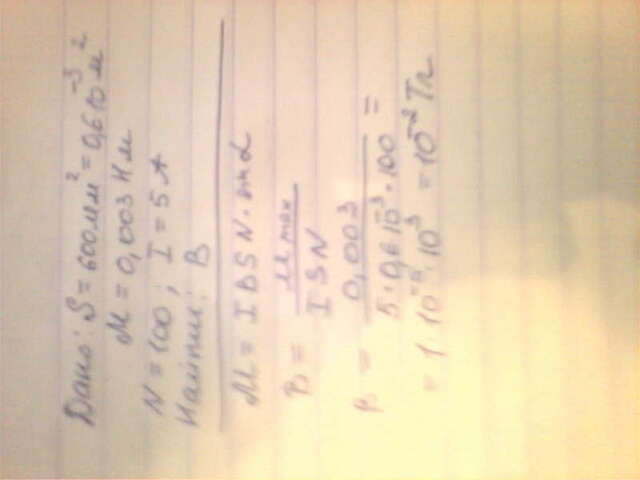 Дано: S = 600 мм² = 0,6 10⁻³ м²
M = 0,003 Н м
N = 100 ; I = 5 А
Найти: B
M = I B S N · sin α
B = M max / I S N
B = 0,003 / 5 · 0,6 10⁻³ · 100 =
= 1 · 10⁻⁵ · 10³ = 10⁻² Тл